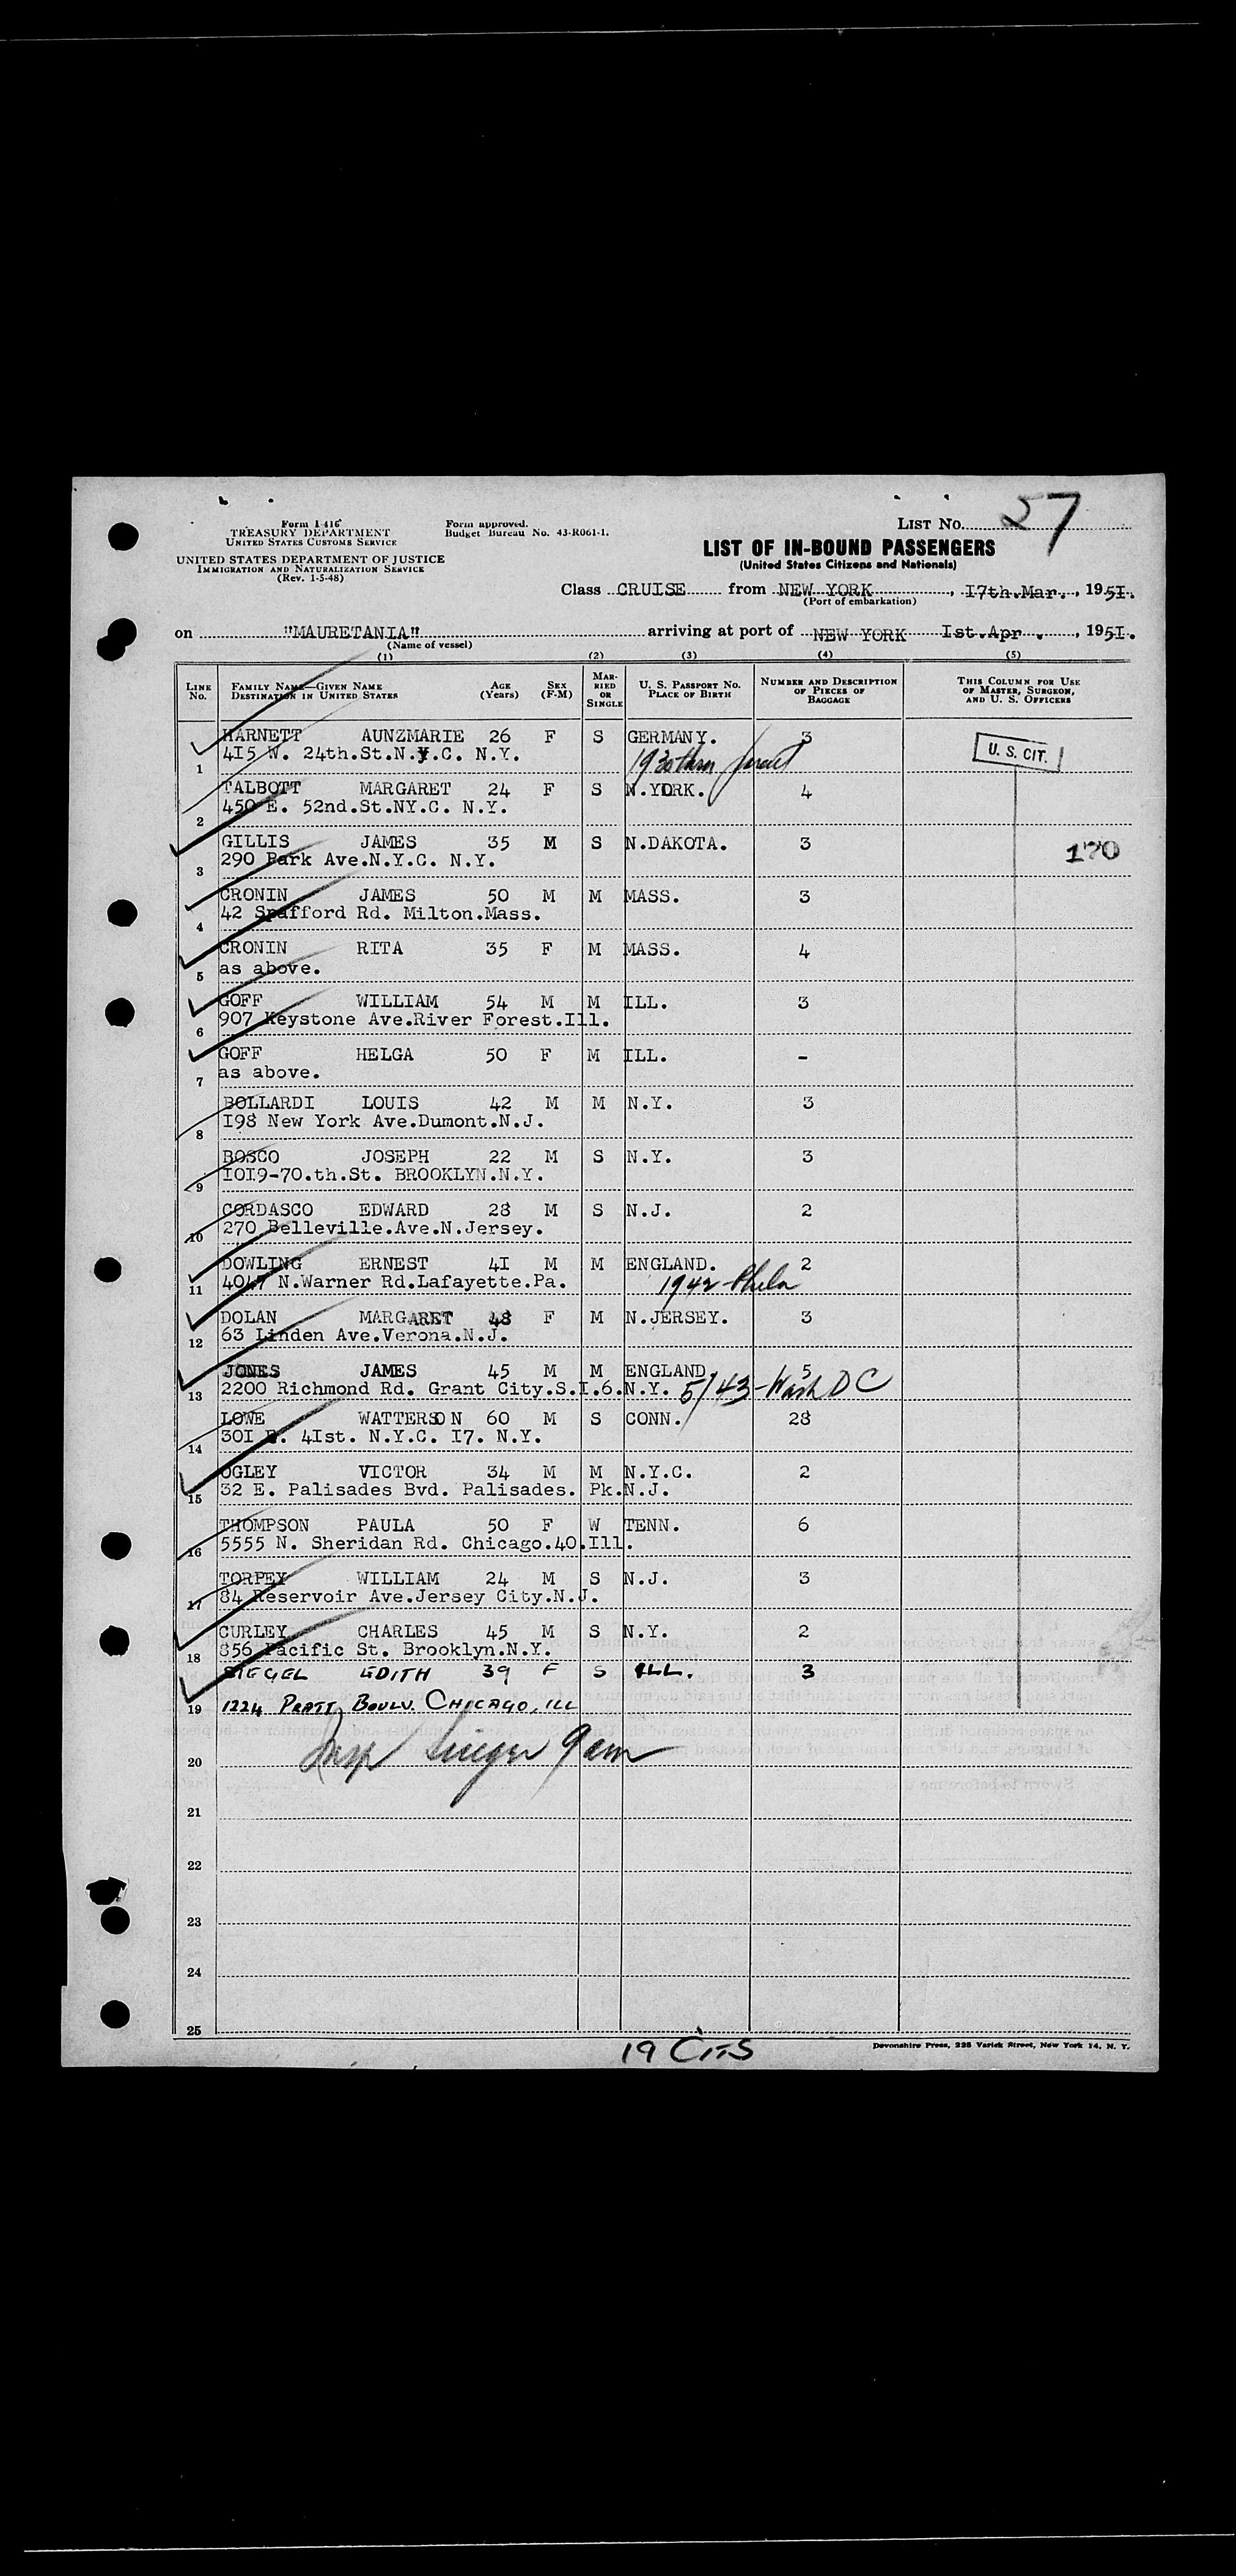 Form I-416
TREASURY DEPARTMENT
UNITED STATES CUSTOMS SERVICE
UNITED STATES DEPARTMENT OF JUSTICE
IMMIGRATION AND NATURALIZATION SERVICE
(Rev. 1-5-48)
Form approved.
Budget Bureau No. 43-R061-1.
LIST NO. 27
LIST OF IN-BOUND PASSENGERS
(United States Citizens and Nationals)
Class CRUISE from NEW YORK, I7th.Mar., 195I.
(Port of embarkation)
on "MAURETANIA" arriving at port of NEW YORK Ist.Apr., 195I.
(Name of vessel)
(1) (2) (3) (4) (5)
LINE NO. FAMILY NAME—GIVEN NAME DESTINATION IN UNITED STATES AGE (Years) SEX (F-M) MARRIED OR SINGLE U. S. PASSPORT NO. PLACE OF BIRTH NUMBER AND DESCRIPTION OF PIECES OF BAGGAGE THIS COLUMN FOR USE OF MASTER, SURGEON, AND U. S. OFFICERS
HARNETT AUNZMARIE 26 F S GERMANY. 3 U. S. CIT.
1 4I5 W. 24th.St.N.Y.C. N.Y. 1930
TALBOTT MARGARET 24 F S N.YORK. 4
2 450 E. 52nd.St.NY.C. N.Y.
GILLIS JAMES 35 M S N.DAKOTA. 3 170
3 290 Park Ave.N.Y.C. N.Y.
CRONIN JAMES 50 M M MASS. 3
4 42 Spafford Rd. Milton.Mass.
CRONIN RITA 35 F M MASS. 4
5 as above.
GOFF WILLIAM 54 M M ILL. 3
6 907 Keystone Ave.River Forest.Ill.
GOFF HELGA 50 F M ILL. -
7 as above.
BOLLARDI LOUIS 42 M M N.Y. 3
8 I98 New York Ave.Dumont.N.J.
BOSCO JOSEPH 22 M S N.Y. 3
9 IOI9-70.th.St. BROOKLYN.N.Y.
CORDASCO EDWARD 28 M S N.J. 2
10 270 Belleville.Ave.N.Jersey.
DOWLING ERNEST 4I M M ENGLAND. 2
11 4047 N.Warner Rd.Lafayette.Pa. 1942-Phila
DOLAN MARGARET 48 F M N.JERSEY. 3
12 63 Linden Ave.Verona.N.J.
JONES JAMES 45 M M ENGLAND 5
13 2200 Richmond Rd. Grant City.S.I.6.N.Y. 5/43-Wash DC
LOWE WATTERSON 60 M S CONN. 28
14 30I E. 4Ist. N.Y.C. I7. N.Y.
OGLEY VICTOR 34 M M N.Y.C. 2
15 32 E. Palisades Bvd. Palisades. Pk.N.J.
THOMPSON PAULA 50 F W TENN. 6
16 5555 N. Sheridan Rd. Chicago.40.Ill.
TORPEY WILLIAM 24 M S N.J. 3
17 84 Reservoir Ave.Jersey City.N.J.
CURLEY CHARLES 45 M S N.Y. 2
18 856 Pacific St. Brooklyn.N.Y.
SIEGEL EDITH 39 F S ILL. 3
19 1224 PRATT BOULV. CHICAGO, ILL
20 Insp
21
22
23
24
25
19 CITS
Devonshire Press, 225 Varick Street, New York 14, N. Y.